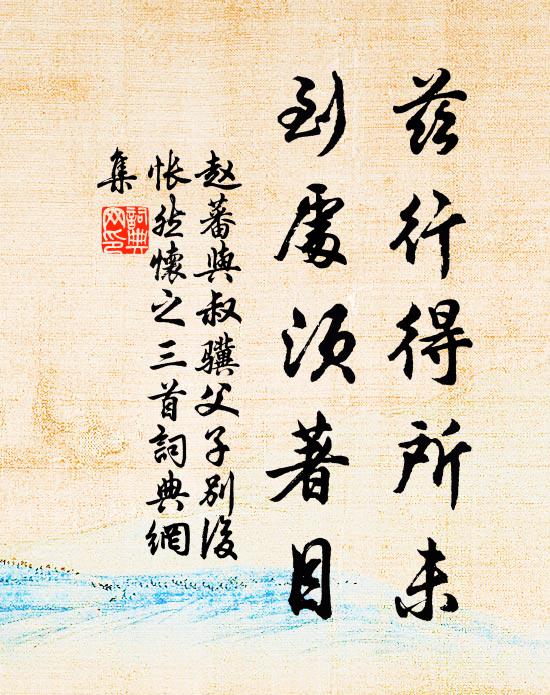 兹行得所未
到处须著目
赵蕃与叔骥父子别后
怅然怀之三首词典网
集
词典网印